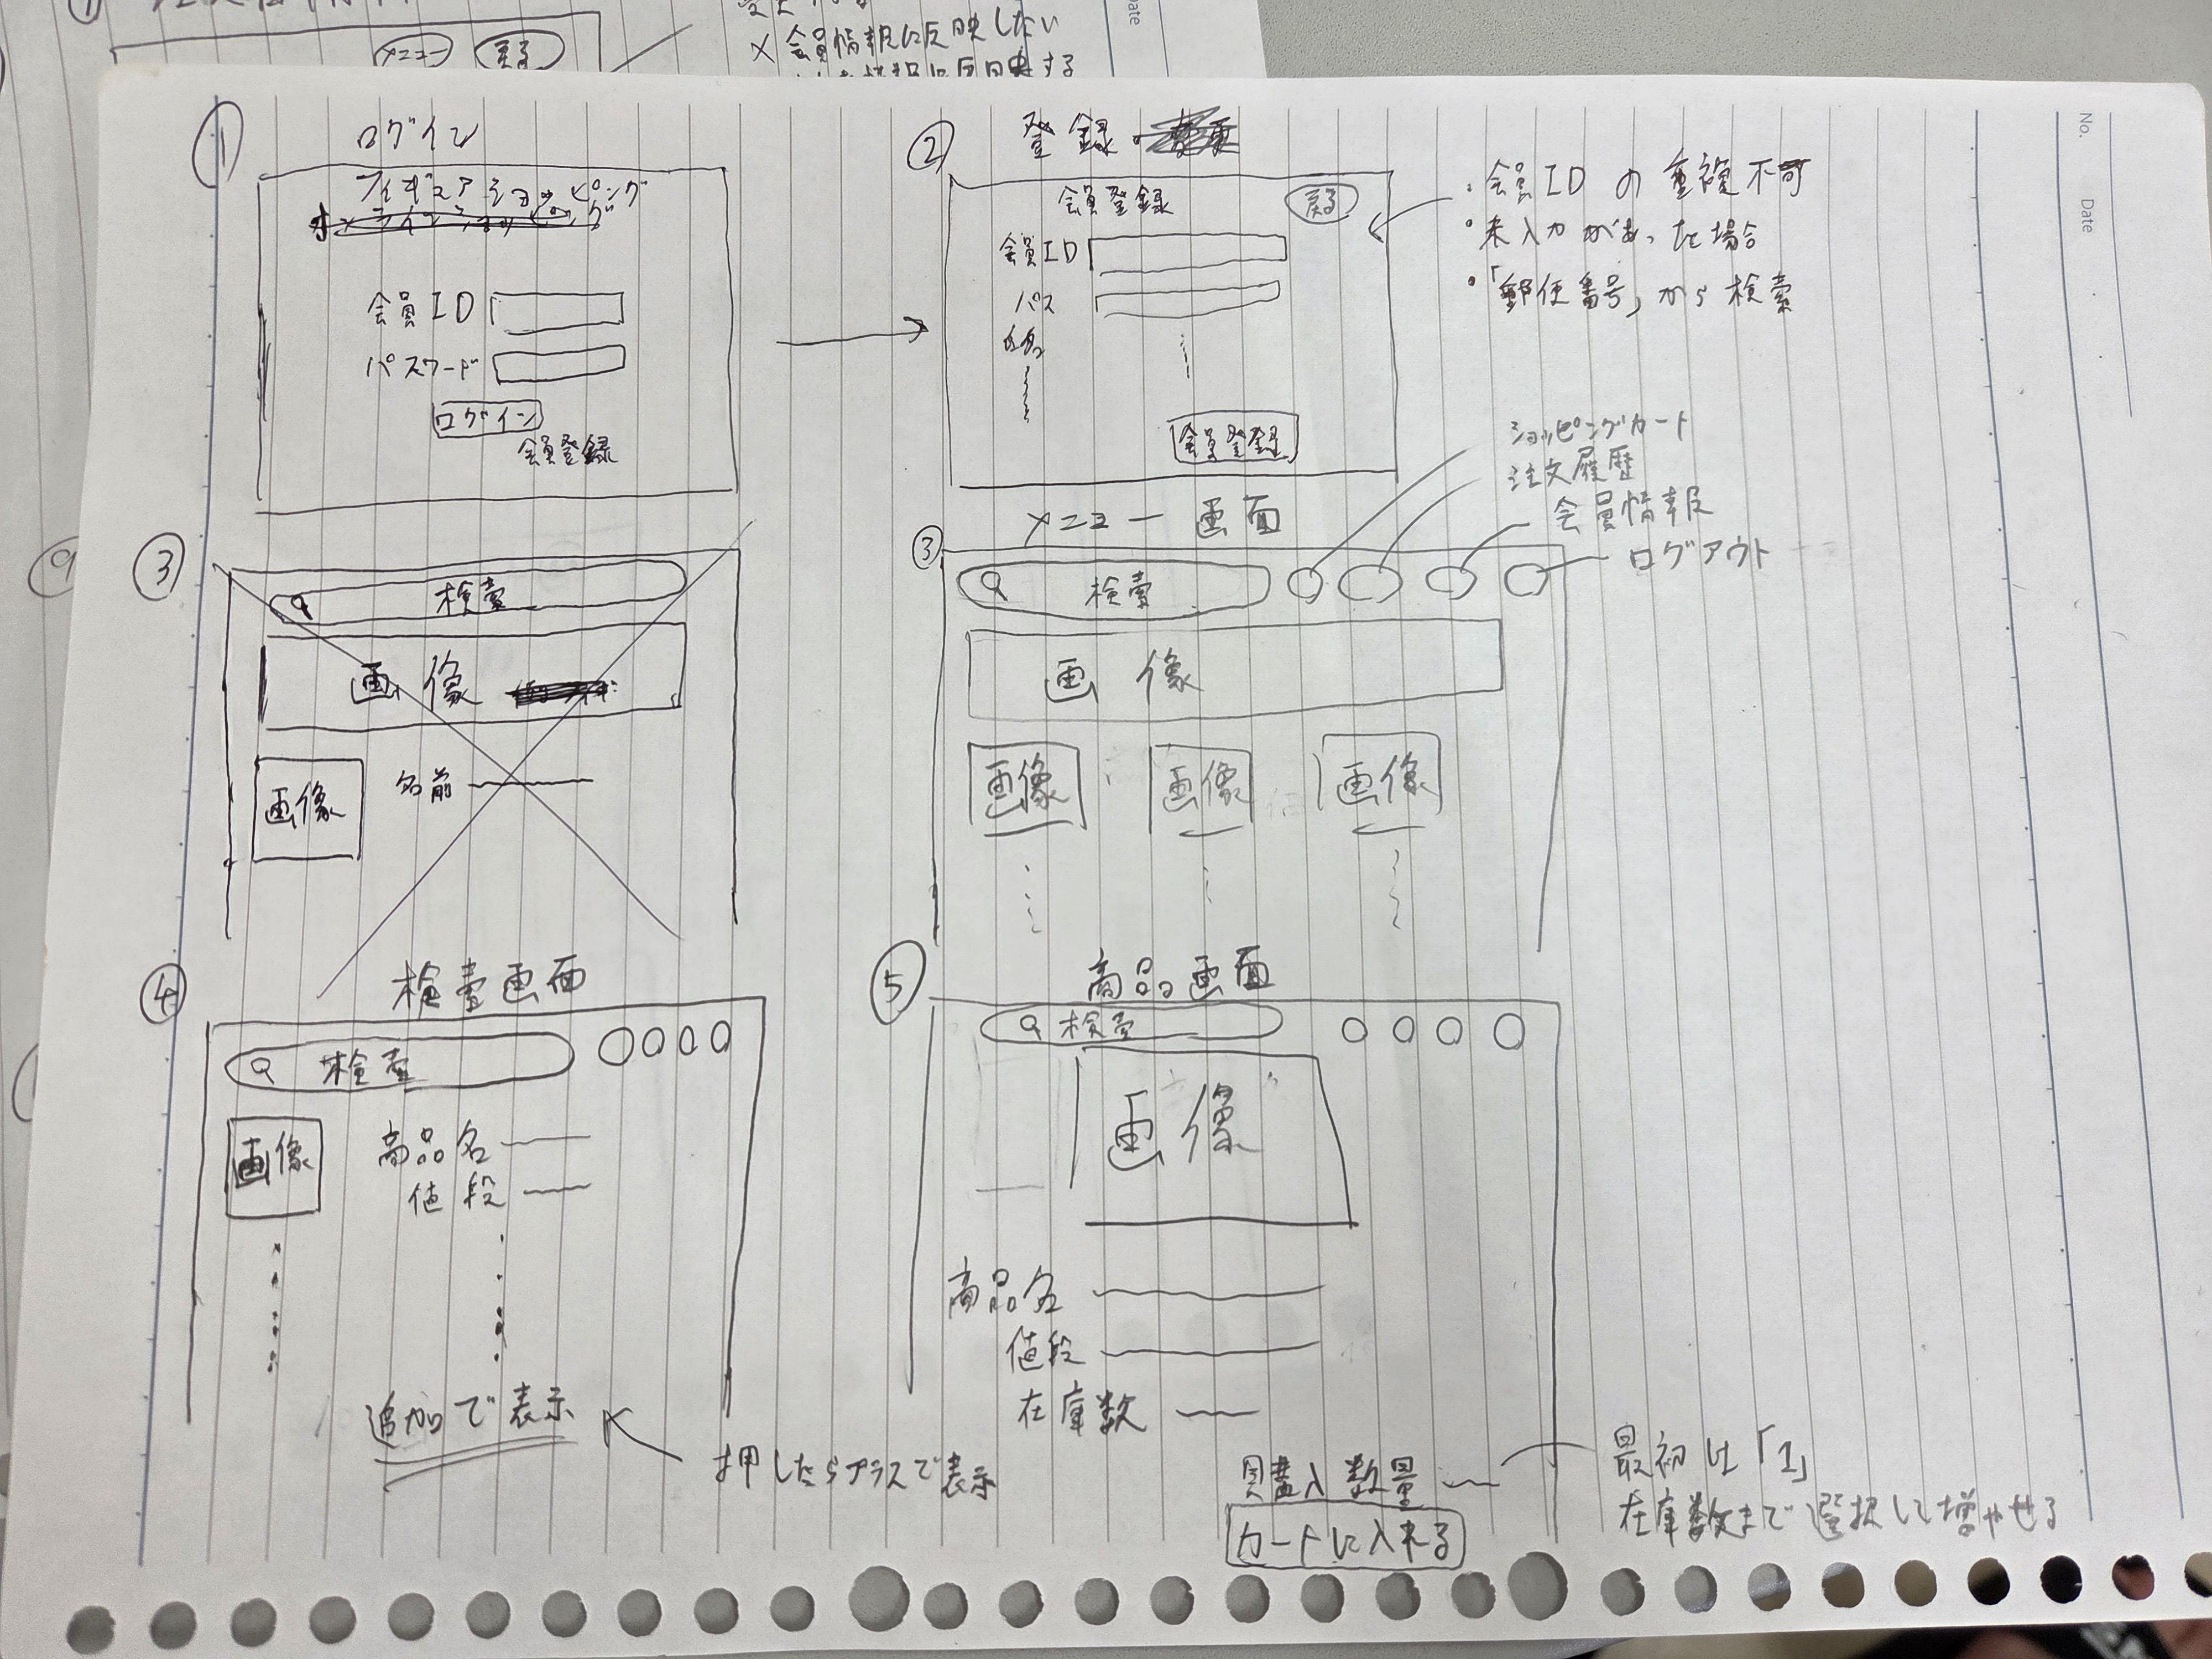 メニュー 戻る
× 会員情報に反映しない
① ログイン
フィギュアショッピング
会員ID
パスワード
ログイン
会員登録
② 登録・
会員登録 戻る
会員ID
パス
・会員IDの重複不可
・未入力があった場合
・「郵便番号」から検索
会員登録
③
検索
画像
画像 名前
メニュー画面
③
検索
ショッピングカート
注文履歴
会員情報
ログアウト
画像
画像 画像 画像
④ 検索画面
検索
画像 商品名
値段
追加で表示
押したらプラスで表示
⑤ 商品画面
検索
画像
商品名
値段
在庫数
購入数量
カートに入れる
最初は「1」
在庫数まで選択して増やせる
No.
Date
Date
⑨